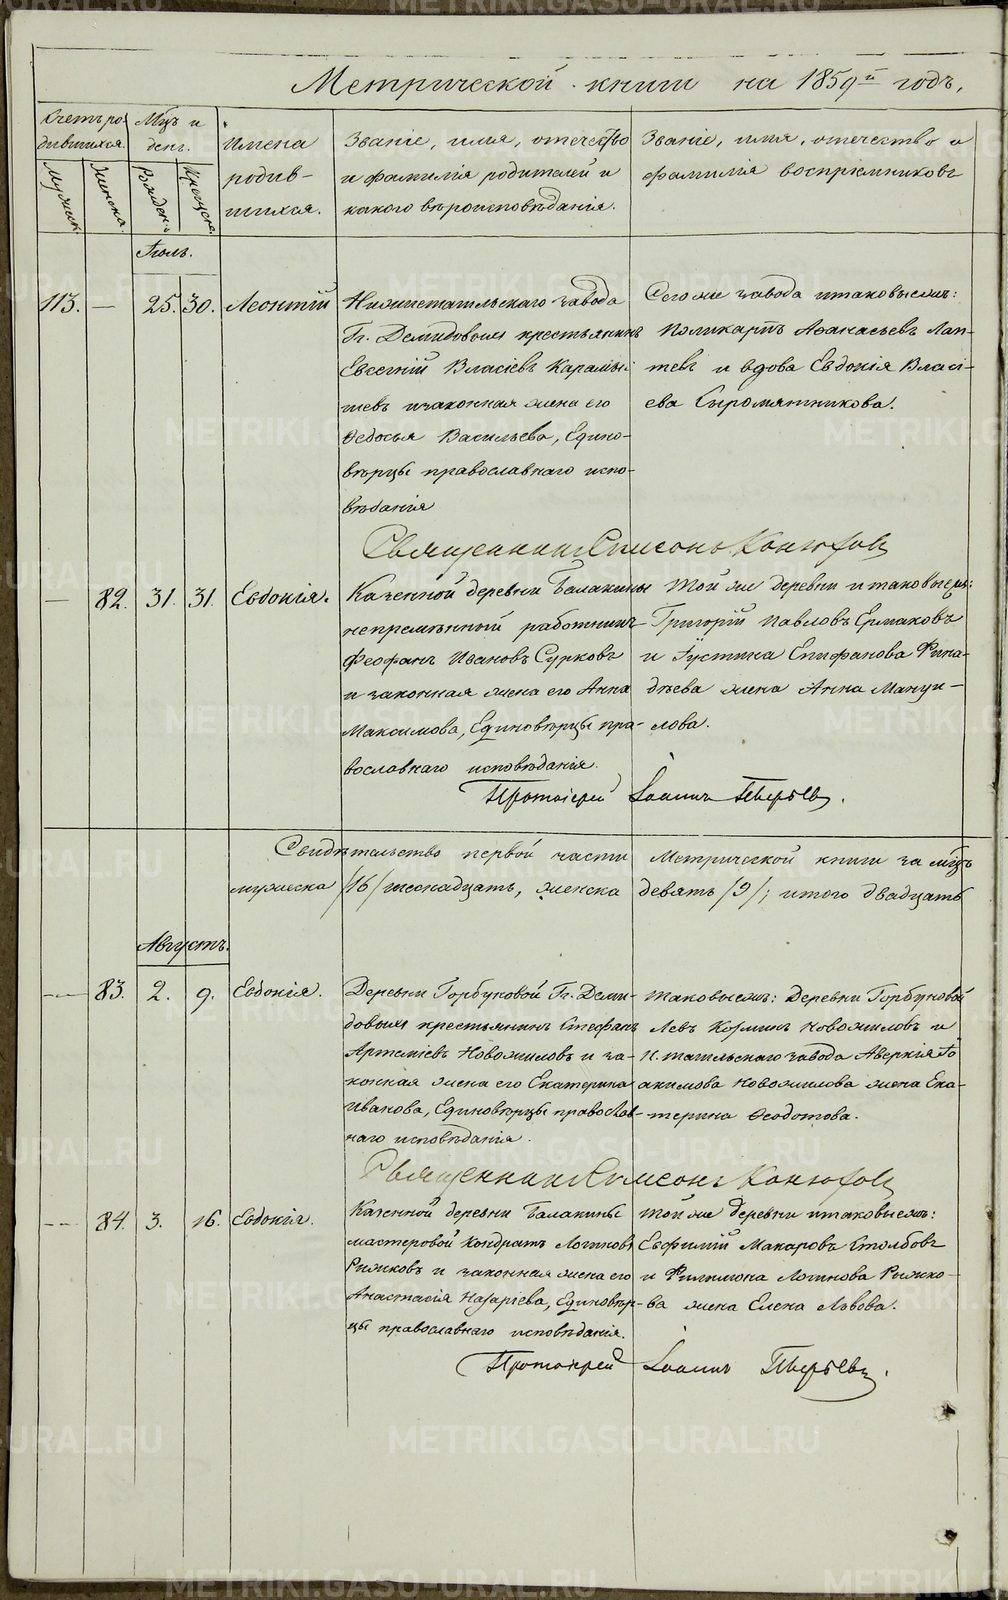 Метрической книги на 1859й годъ,
Счетъ родившихся.
Мужеск.
Женска.
Мцъ и день.
Рожден.
Крещен.
Имена родившихся.
Званіе, имя, отечество
и фамилія родителей и
какого вѣроисповѣданія.
Званіе, имя, отечество и
фамилія воспріемниковъ
Іюль.
113. — 25. 30. Леонтій
Нижнетагильскаго завода
Гг. Демидовыхъ крестьянинъ
Евсегній Власіевъ
и законная жена его
Ѳедосья Васильева, Едино-
вѣрцы православнаго испо-
вѣданія
Сего же завода и таковыежъ:
Поликарпъ Аѳанасьевъ Лап-
тевъ и вдова Евдокія Власі-
ева Сыромятникова.
Священникъ Симеонъ Конюхов
— 82. 31. 31. Евдокія.
Казенной деревни Балакины
непремѣнный работникъ
Феофанъ Ивановъ Сурковъ
и законная жена его Анна
Максимова, Единовѣрцы пра-
вославнаго исповѣданія.
Той же деревни и таковыежъ:
Григорій Павловъ Ермаковъ
и Іустина Епифанова
жена Анна Мануи-
лова.
Протоіерей Іоаннъ Пырьевъ.
Свидѣтельство первой части Метрической книги за мцъ
мужеска /16/ шеснадцать, женска девять /9/; итого двадцать
Августъ.
— 83. 2. 9. Евдокія.
Деревни Горбуновой Гг. Деми-
довыхъ крестьянинъ Стефанъ
Артеміевъ Новожиловъ и за-
конная жена его Екатерина
Иванова, Единовѣрцы православ-
наго исповѣданія.
таковыежъ: Деревни Горбуновой
Левъ Козминъ Новожиловъ и
Н. тагильскаго завода Аверкія Іо
акимова Новожилова жена Ека-
терина Ѳеодотова.
Священникъ Симеонъ Конюхов
— 84. 3. 16. Евдокія.
Казенной деревни Балакины
мастеровой Кондратъ Логиновъ
Рижковъ и законная жена его
Анастасія Назаріева, Единовѣр-
цы православнаго исповѣданія.
той же деревни и таковыежъ:
Евфимій Макаровъ Столбовъ
и Филимона Логинова Рижко-
ва жена Елена Львова.
Протоіерей Іоаннъ Пырьевъ.
METRIKI.GASO-URAL.RU